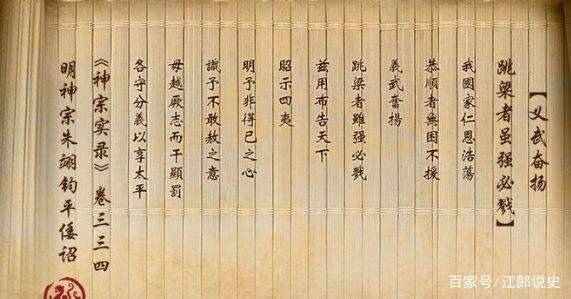 【义武奋扬
跳梁者虽强必戮】
我國家仁恩浩蕩
恭順者無困不援
義武奮揚
跳梁者雖强必戮
兹用布告天下
昭示四夷
明予非得已之心
識予不敢赦之意
毋越厥志而干顯罰
各守分義以享太平
《神宗实录》卷三三四
明神宗朱翊钧平倭诏
百家号/江郎说史